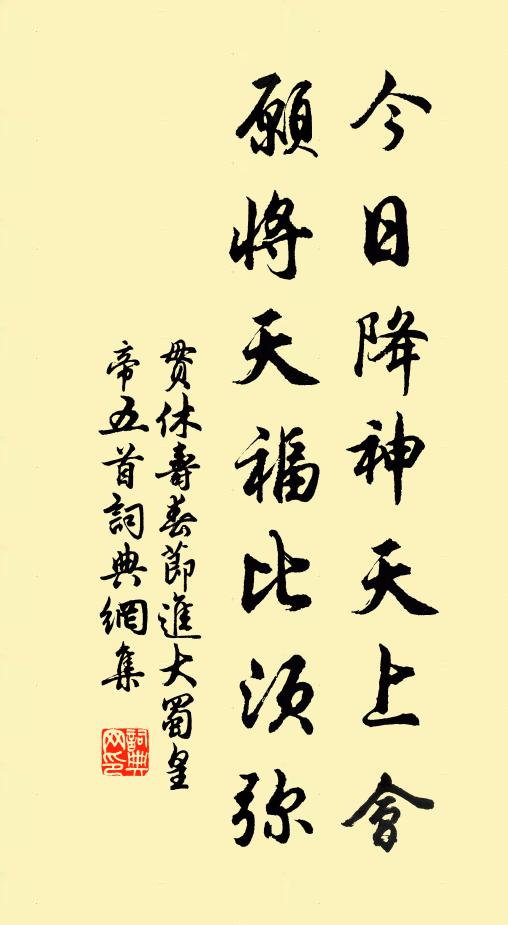 今日降神天上會
願將天福比須弥
貫休壽春節進大蜀皇
帝五首詞典網集
詞典
网印